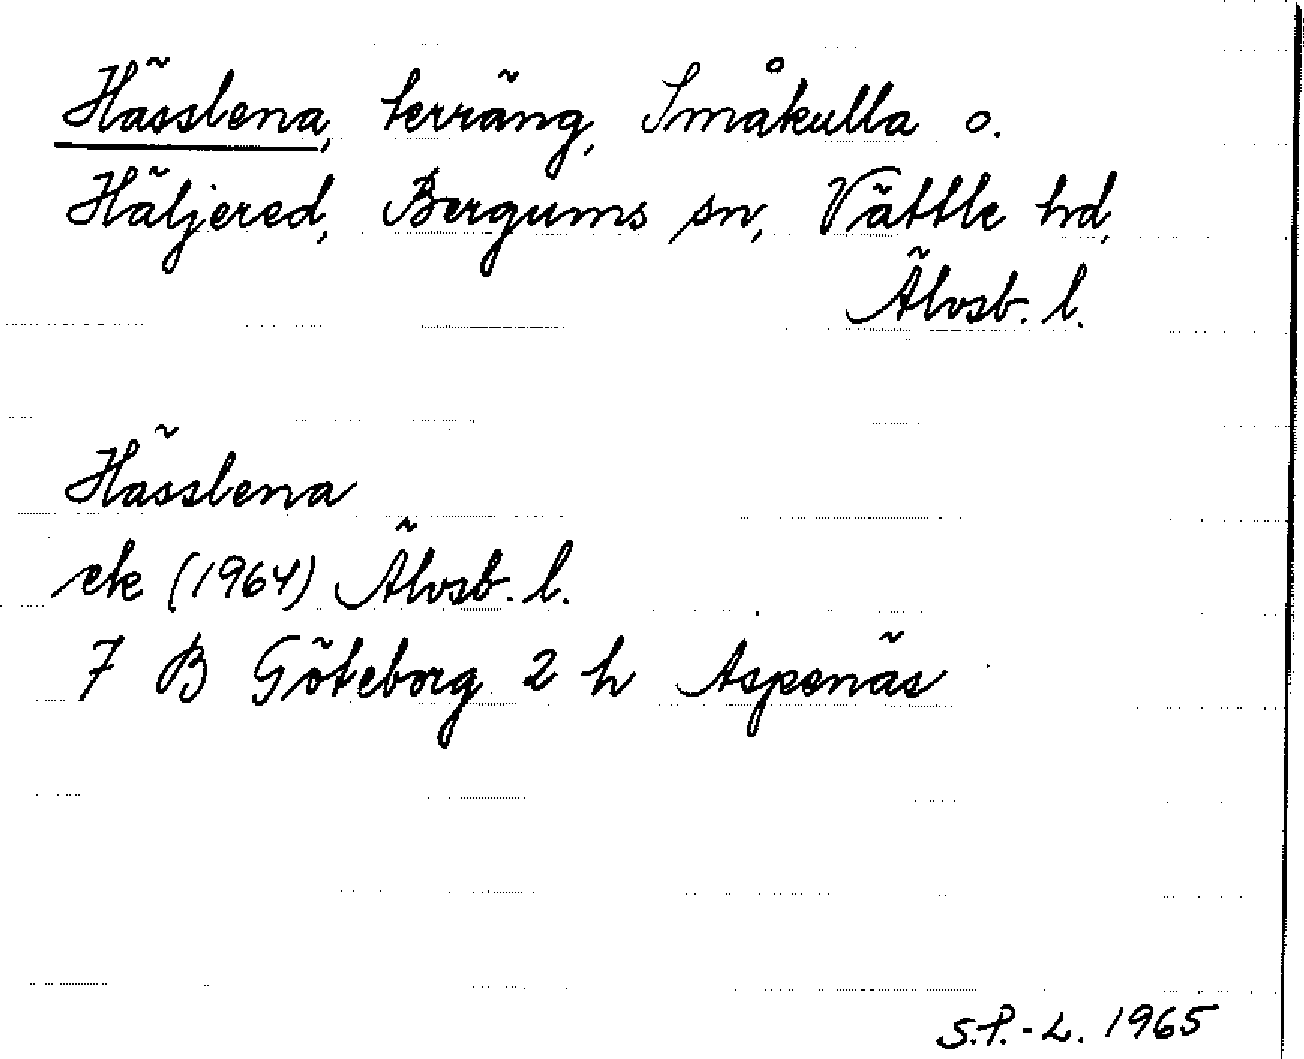 Hässlena, terräng, Småkulla o.
Häljered, Bergums sn, Vättle hd,
Älvsb. l.
Hässlena
ek (1964) Älvsb. l.
7 B Göteborg 2 h Aspenäs
S.P.-L. 1965